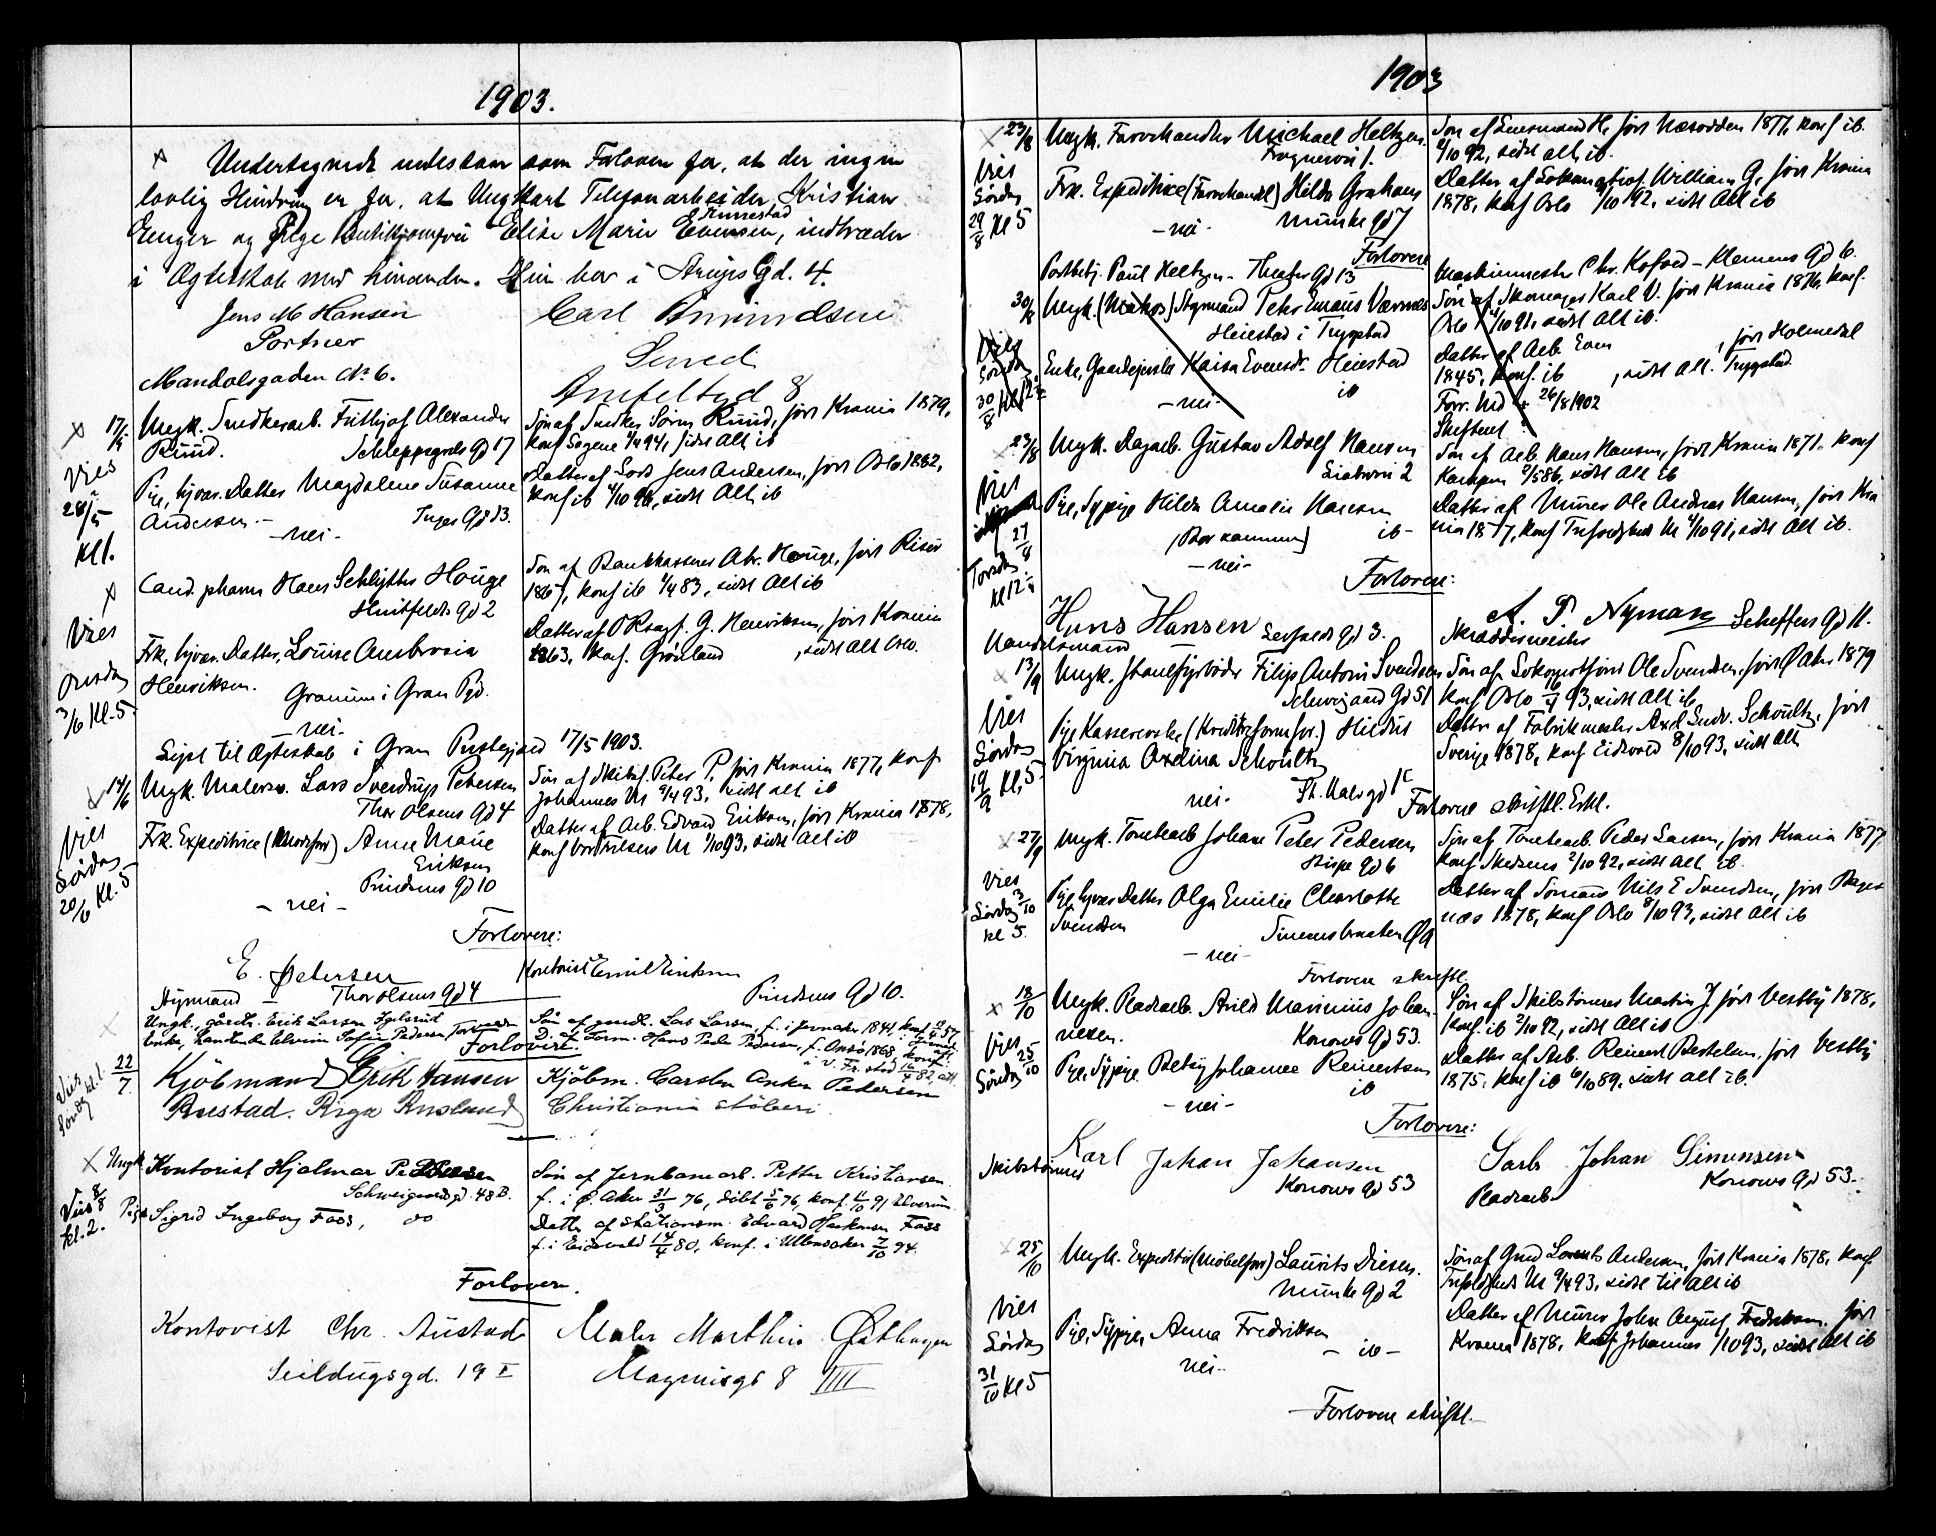 1903.
Undertegnede indestaar som Forlover for, at der ingen
lovlig Hindring er for, at Ungkarl Telefonarbeider Kristian
Enger og Pige Butikjomfru Elise Marie Evensen, indtræder
Finnestad
i Ægteskab med hinanden. Hun bor i Gd. 4.
Jens M Hansen
Portner
Mandalsgaden No 6.
Carl Amundsen
Smed
8
17/5
Vies
28/5
Kl 1.
Ungk. Snedkerarb. Frithjof Alexander
Ruud. Schleppegrels Gd 17
Pige, hjvær. Datter Magdalene Susanne
Andersen - Inges Gd 13.
- nei -
Søn af Snedker Søren Ruud, født Krania 1879,
Konf Sagene 1/4 94, sidst Alt ib
Datter af Jens Andersen, født Oslo 1882,
Konf ib 4/10 96, sidst Alt ib
Vies
Onsdag
3/6 Kl. 5.
Cand. pharm Hans Schlytter Houge
Huitfeldts Gd 2
Frk, hjvær. Datter, Louise Ambrosia
Henriksen. Granum i Gran Pgd.
- nei -
Søn af Bankkasserer Abr. Houge, født Risør
1867, Konf ib 1/4 83, sidst Alt ib
Datter af G. Henriksen, født Krania
1863, Konf. Grønland , sidst Alt Oslo.
Lyst til Ægteskab i Gran Prestegjæld 17/5 1903.
14/6
Vies
Lørdag
20/6 Kl. 5
Ungk. Malersv. Lars Sverdrup Petersen
Thor Olsens Gd 4
Frk. Expeditrice Anne Marie
Eriksen
Prindsens Gd 10
- nei -
Søn af Skibsf. Peter P. født Krania 1877, Konf
Johannes M 9/4 93, sidst alt ib
Datter af Arb. Edvard Eriksen, født Krania 1878,
1/10 93, sidst Alt ib
Forlovere:
E. Petersen
Styrmand - Thor Olsens Gd 4
Kontorist Emil Eriksen
Prindsens Gd 10.
22/7
Vies
Søndag kl. 1.
Ungk. gårdbr. Erik Larsen Igelsrud
Enke, Elvine Sofie Pedersen
Søn af gmdl. Lars Larsen, f. i Jevnaker 1841.
D. af Hans Peder Pedersen, f. Onsø 1868,
Forlovere:
Kjöbmand Erik Hansen
Rustad. Riga Rusland
Kjöbm. Carsten Anker Petersen
Christiania
8/8
Vies
kl. 2.
Ungk Kontorist Hjalmar Pettersen
Schweigaardsgd. 48 B.
Pige Sigrid Ingeborg Foss, do
Søn af Jernbanearb. Petter Kristiansen
f. i Ø. Aker 31/3 76, döbt 5/6 76, konf. 4/10 91 Elverum
Datter af Stationsm. Edvard Foss
f. i Eidsvold 14/4 80, konf. i Ullensaker 7/10 94.
Forlovere.
Kontorist Chr. Austad
Seildugsgd. 19 I
Maler Marthin Østhagen
Magnusgt 8 IIII
1903
23/8
Vies
Lørdag
29/8 Kl 5
Ungk. Farvehandler Michael Heltzen.
Frognervei 1.
Frk. Expeditrice (Farvehandel) Hilda Grahaus
- nei - Munke gd 7
Søn af Lensmand H, født Næsodden 1877, Konf ib.
2/10 92, sidst alt ib.
Datter af William G., født Krania
1878, Konf Oslo 2/10 92, sidst Alt ib
Forlovere
Postbetj. Paul Heltzen - Theater Gd 13
Maskinmester Chr. Kofoed - Klemens Gd 6.
30/8
Vies
Søndag
30/8
Ungk. Styrmand Peter Emaus Værnes
Heiestad i Trygstad
Enke, Gaardejerske Kaisa Evensdr. Heiestad
- nei - ib
Søn af Skomager Karl V. født Krania 1876, Konf.
Oslo 4/10 91, sidst Alt ib.
Datter af Arb. Even , født Holmedal
1845, Konf. ib , sidst Alt. Trygstad
Forr. Md + 26/8 1902
Skifteat ?
23/8
Vies
27/8
Torsdag
Kl 12
Ungk. Dagarb. Gustav Adolf Hansen
2
Pige, Sypige Hilda Amalie Hansen
(Bor sammen) ib -
- nei -
Søn af Arb. Hans Hansen, født Krania 1871. Konf
Kampen 2/5 86, sidst Alt ib
Datter af Murer Ole Andreas Hansen, født Kra
nia 1877, Konf Trefoldgheds M 4/10 91, sidst Alt ib.
Forlovere:
Hans Hansen Gd 3.
Handelsmand
A. P. Nyman Schøffers Gd 11.
Skræddermester
13/9
Vies
Lørdag
19/9 Kl. 5.
Ungk. Filip Antoni Svendsen
Schweigaard Gd 51
Pige Kassererske (Kreditforenfor.) Hildus
Virginia Axelina Schoultz
nei. St. Halvgd 1c
Søn af Ole Svendsen, født Ø Aker 1879
Konf Oslo 16/4 93, sidst Alt ib
Datter af Fabrikmester Axel Schoultz, født
Sverige 1878, Konf Eidsvold 8/10 93, sidst Alt
Forlovere skriftl. Erkl.
27/9
Vies
Lørdag 3/10
kl 5.
Ungk. Johan Peter Pedersen
gd 6
Pige, hjvær Datter Olga Emilie Charlotte
Svendsen
- nei -
Søn af Peder Larsen, født Krania 1877
Konf 2/10 92, sidst Alt ib.
Datter af Sømand Nils E Svendsen, født
1878, Konf Oslo 8/10 93, sidst Alt ib
Forlovere skriftl.
18/10
Vies
25/10
Søndag
Ungk. Pladsarb. Arild Marinius Johan-
nesen. Konows Gd 53.
Pige, Sypige Betsy Johanne Reinertsen
- nei - ib
Søn af Skibstømres Martin J. født Vestby 1878,
Konf. ib 2/10 92, sidst Alt ib
Datter af Arb. Reinert Bertelsen, født Vestby
1875, Konf ib 6/10 89, sidst Alt ib.
Forlovere:
Karl Johan Johansen
Skibstømmer Konows Gd 53
Johan Simensen
Pladsarb Konows Gd 53.
25/10
Vies
Lørdag
31/10 Kl 5
Ungk. Expeditør (Møbelforr) Laurits Diesen.
Munke Gd 2
Pige, Sypige, Anna Fredriksen
- ib -
nei -
Søn af Smed Andersen, født Krania 1878, Konf
Trefoldgheds M 9/4 93, sidst til Alt ib
Datter af Murer John August Fredriksen. født
Krania 1878, Konf Johannes 1/10 93, sidst Alt ib
- Forlovere skriftl. -